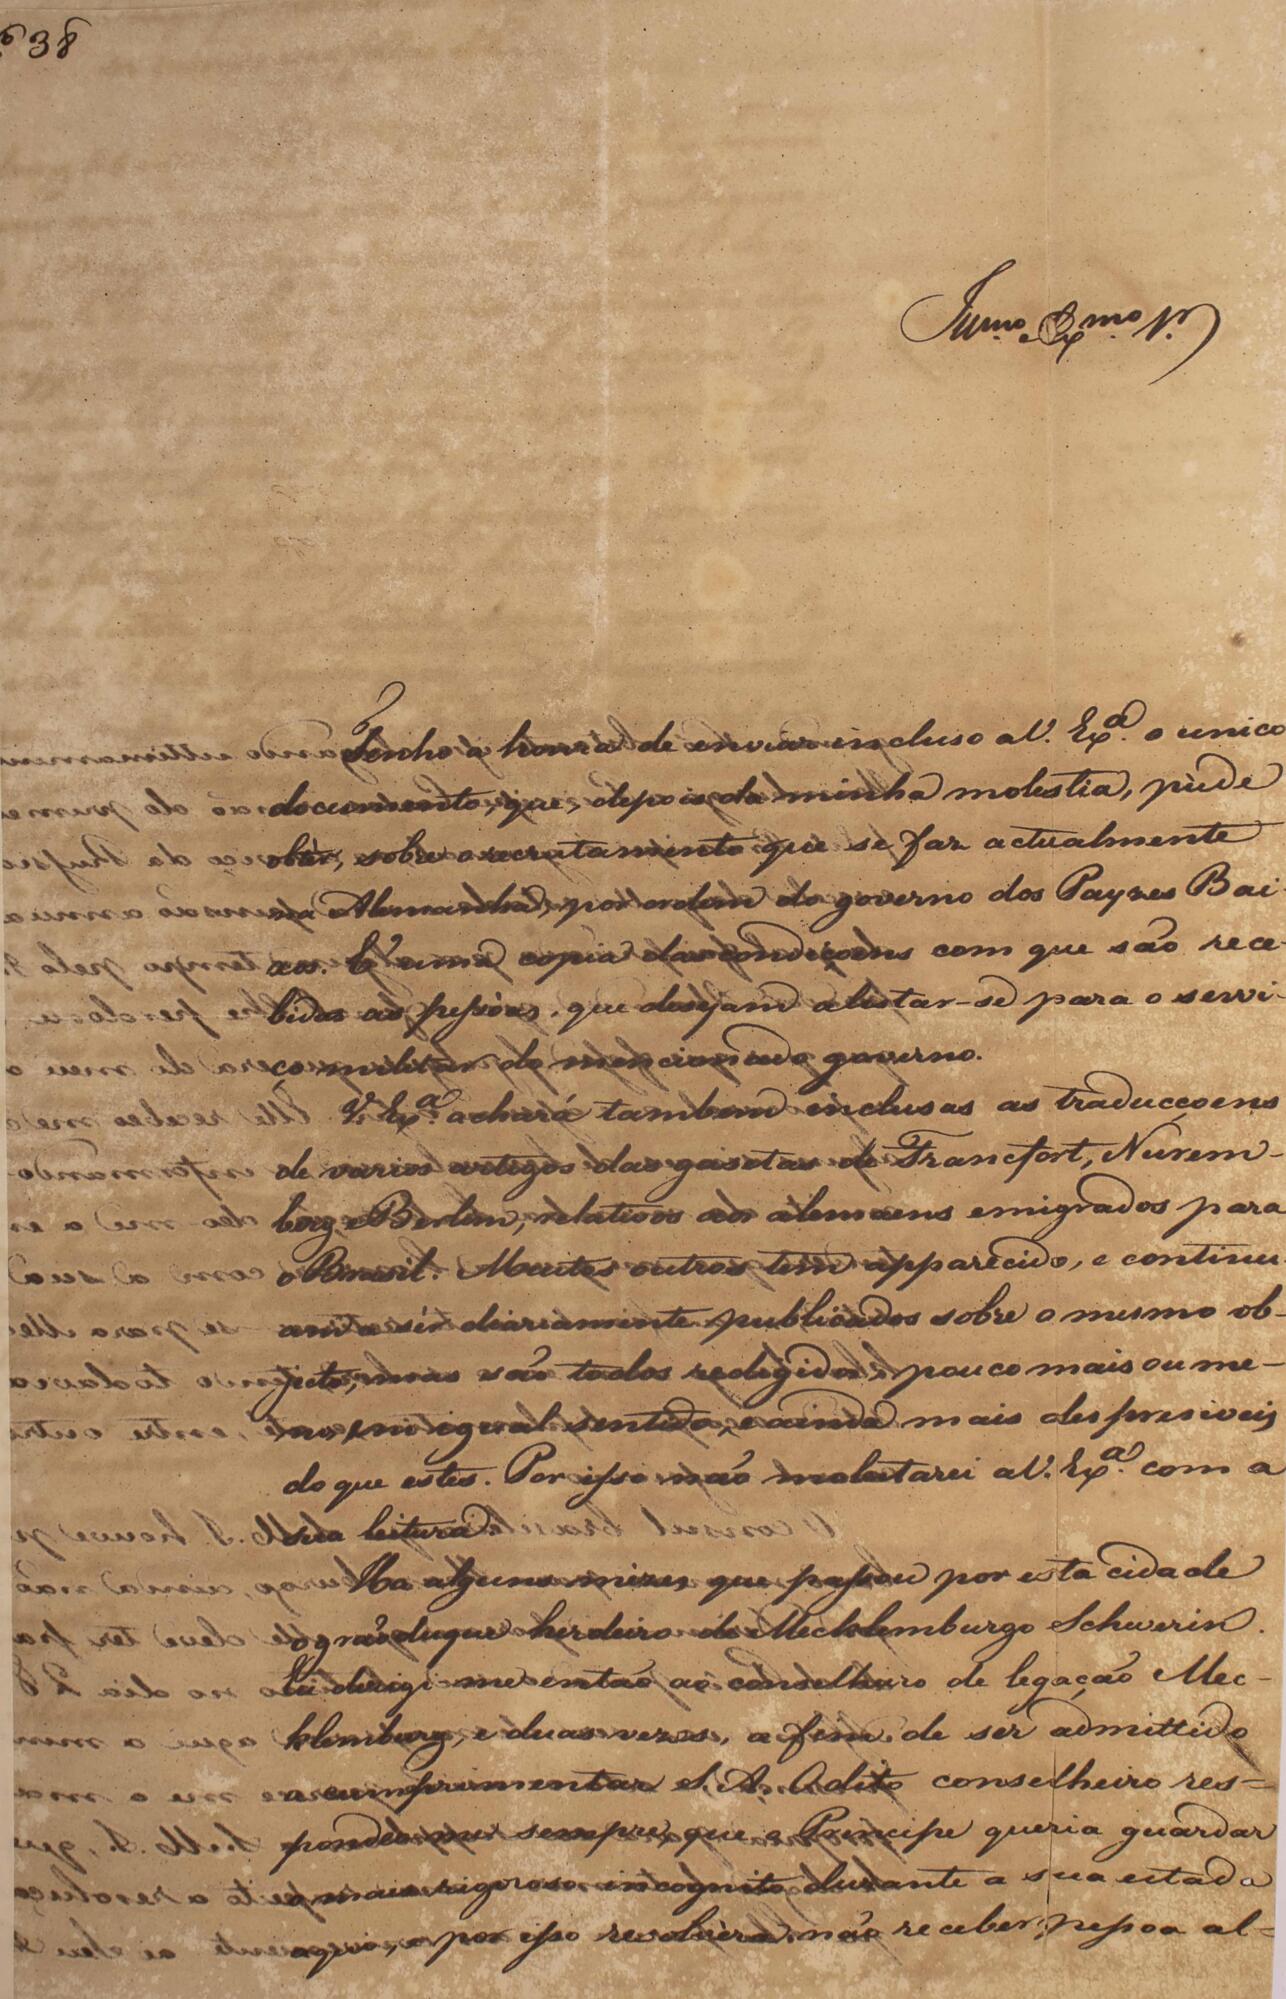 638
Illmo. e Exmo. Sr.
Tenho a honra de enviar incluso a V. Exª. o unico
documento, que, depois da minha molestia, pude
obter, sobre o recrutamento que se faz actualmente
na Alemanha, por ordem do governo dos Payzes Bai-
xos. É uma copia das condiçoens com que são rece-
bidas as pessoas, que desejam alistar-se para o servi-
ço militar do mencionado governo.
V. Exª. achará tambem inclusas as traducçoens
de varios artigos das gasetas de Francfort, Nurem-
berg e Berlim, relativos aos alemaens emigrados para
o Brasil. Muitos outros tem apparecido, e continu-
am a sêr diariamente publicados sobre o mesmo ob-
jeto, mas são todos redigidos, pouco mais ou me-
nos, em igual sentido, e ainda mais despresiveis
do que estes. Por isso não molestarei a V. Exª. com a
sua leitura.
Ha alguns mezes, que passou por esta cidade
o grão duque herdeiro de Mecklemburgo Schwerin.
Eu dirigi-me então ao conselheiro de legação Mec-
klemburg, e duas vezes, a fim de ser admittido
a cumprimentar S. A. O dito conselheiro res-
pondeo-me sempre, que o Principe queria guardar
o mais rigoroso incognito durante a sua estada
aqui, e por isso resolvêra não receber pessoa al-